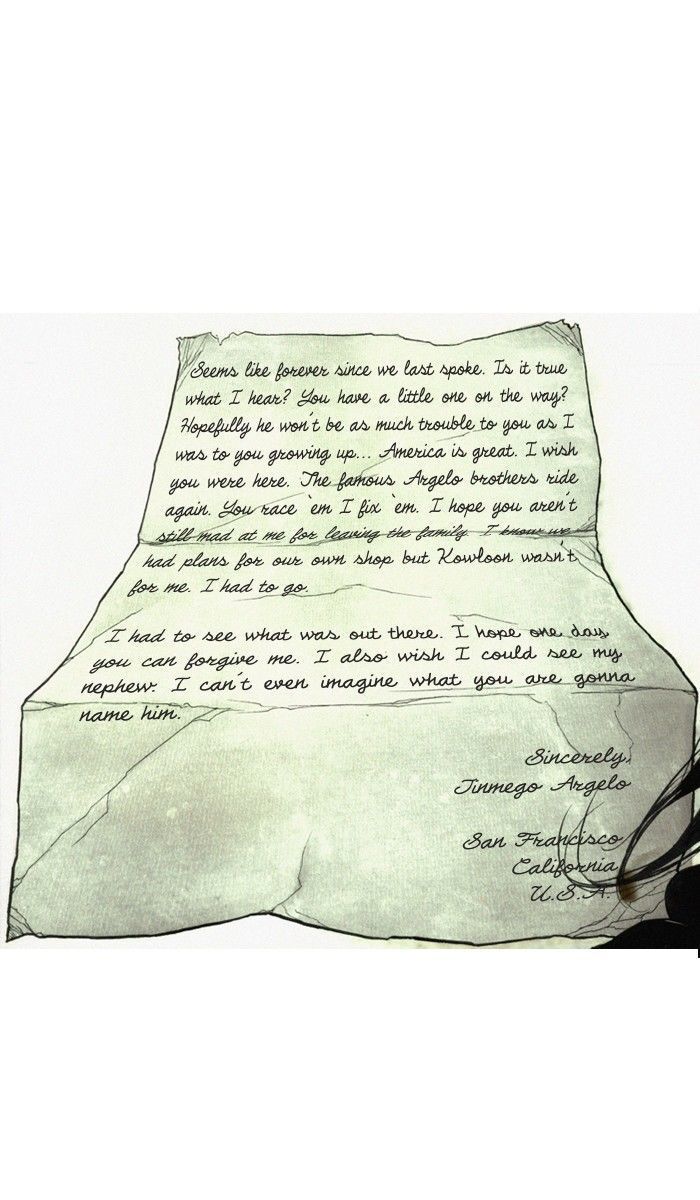 Seems like forever since we last spoke. Is it true
what I hear? You have a little one on the way?
Hopefully he won't be as much trouble to you as I
was to you growing up... America is great. I wish
you were here. The famous Argelo brothers ride
again. You race `em I fix `em. I hope you aren't
still mad at me for leaving the family. I know we
had plans for our own shop but Kowloon wasn't
for me. I had to go.
I had to see what was out there. I hope one day
you can forgive me. I also wish I could see my
nephew. I can't even imagine what you are gonna
name him.
Sincerely,
Jinmego Argelo
San Francisco
California
U.S.A.